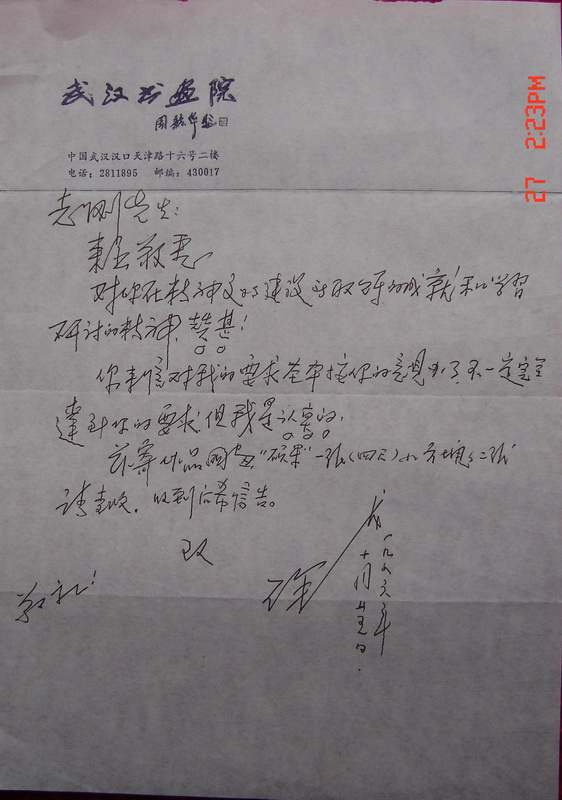 武汉书画院
中国武汉汉口天津路十六号二楼
电话：2811895 邮编：430017
志刚先生：
来函敬悉
对你在精神文明建设所取得的成就和学习
研讨的精神，赞甚！
你来信对我的要求基本按你的意见办了，不一定完全
达到你的要求但我是认真的，
兹寄作品国画“硕果”一张（四尺）小方块二张
请查收，收到后希信告。
致
敬礼！
一九九六年
十月
27 2:23PM